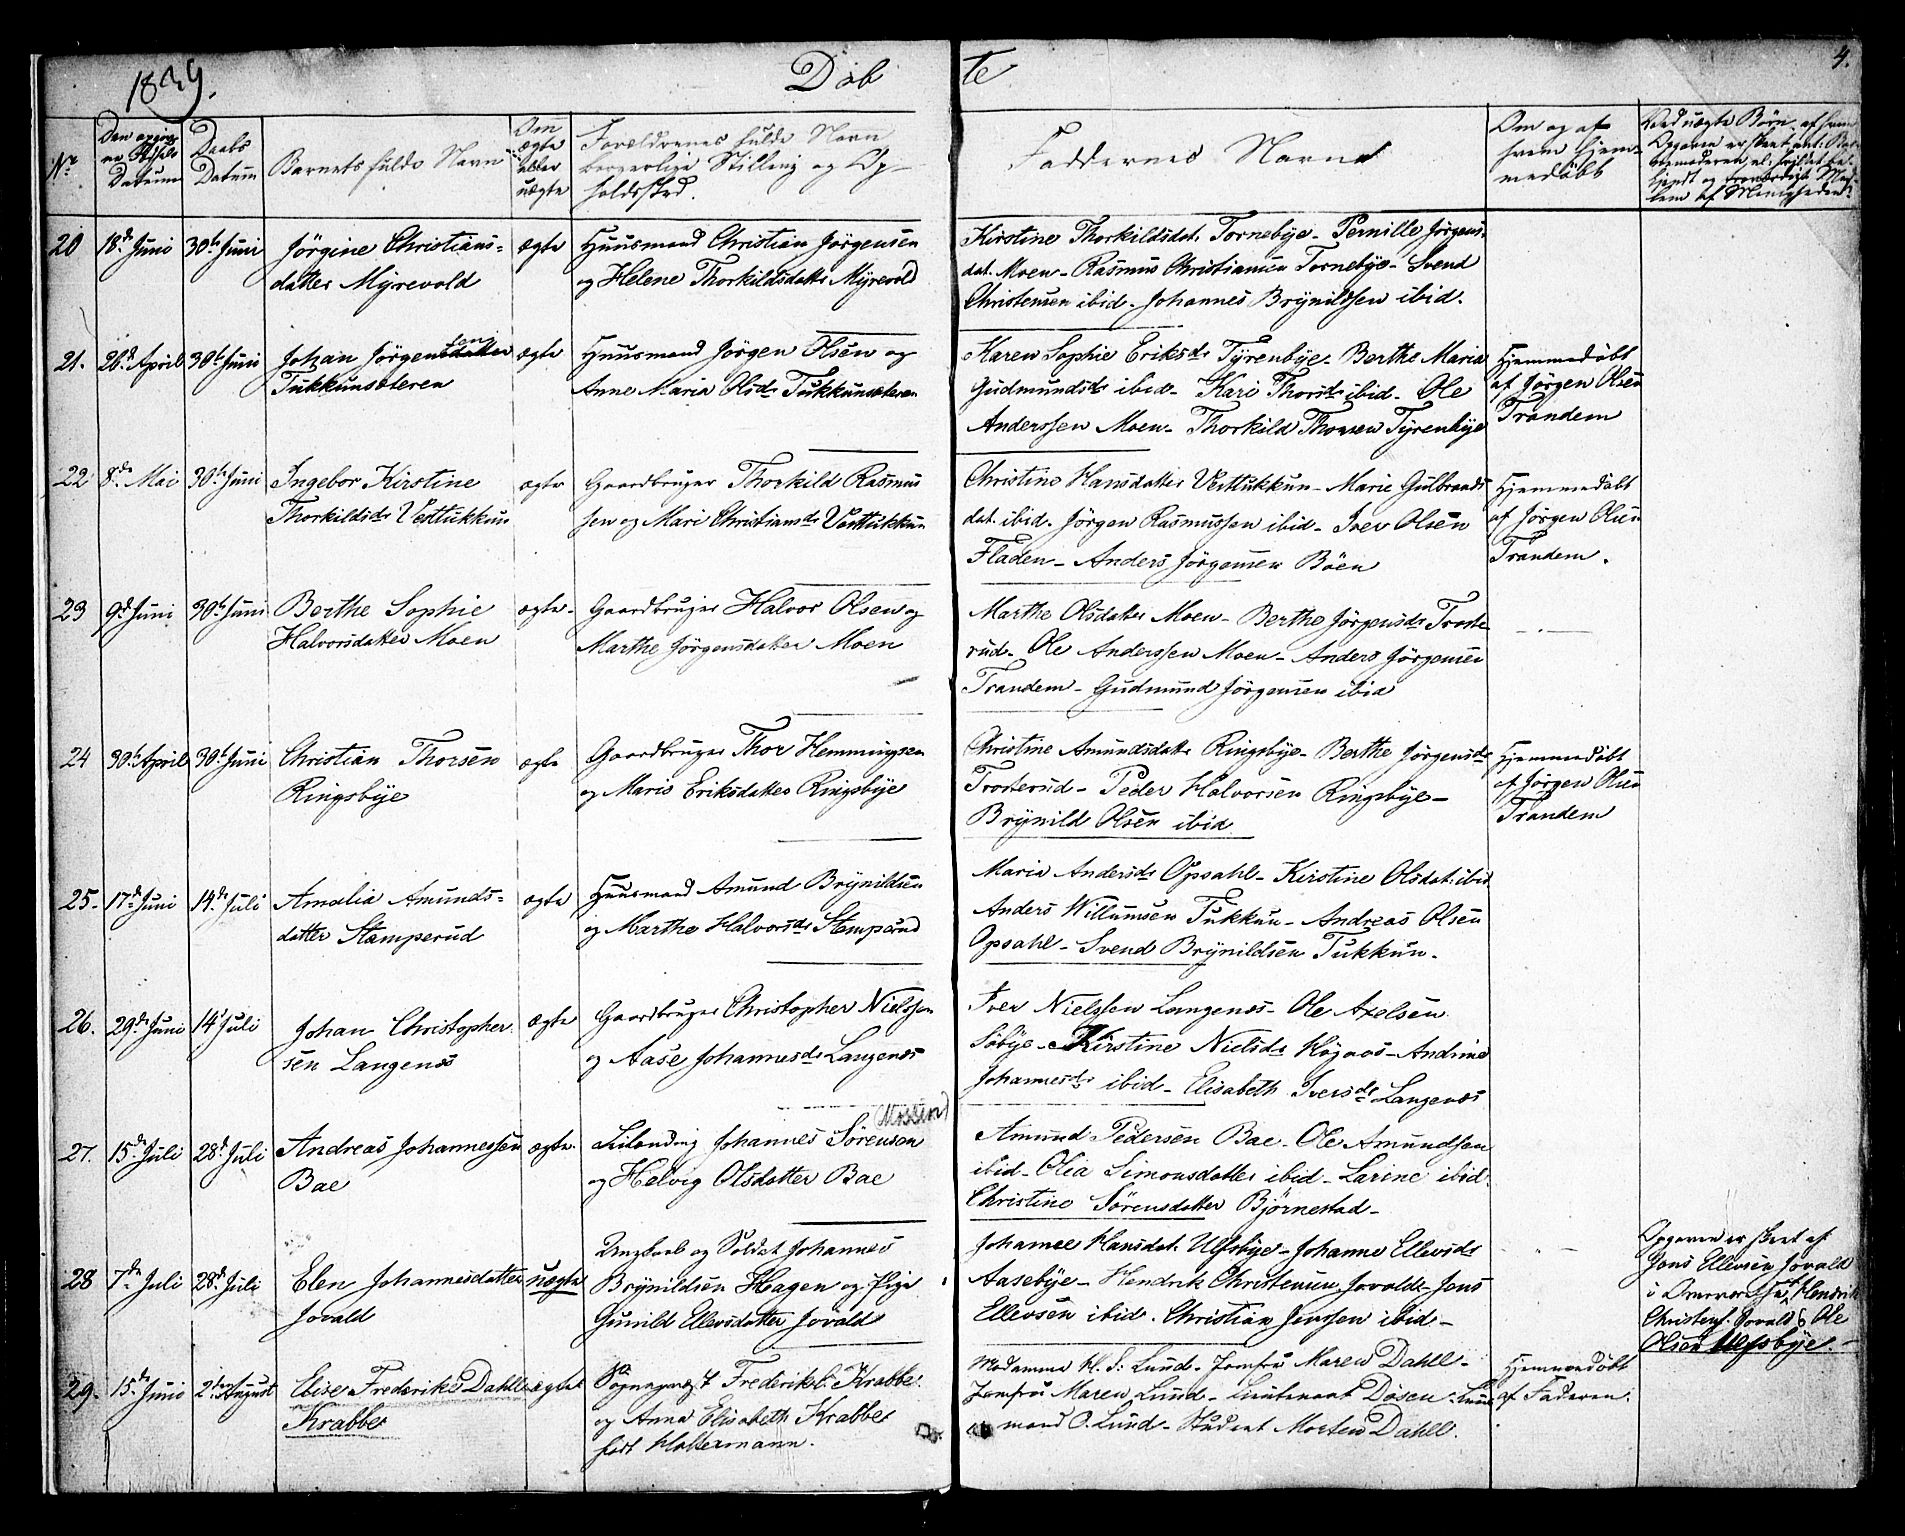 1839.
Døb
te
4.
Nr
Den opgiv-
ne Fødsels
Datum
Daabs
Datum
Barnets fulde Navn
Om
ægte
eller
uægte
Forældrenes fulde Navn
borgerlige Stilling og Op-
holdssted.
Faddernes Navne
Om og af
hvem hjem-
medøbt
Ved uægte Børn, af hvem
20
18de Juni
30te Juni
Jörgine Christians-
datter Myrevold
ægte
Huusmand Christian Jörgensen
og Helene Thorkildsdatter Myrevold
Kirstine Thorkildsdat. Tornebye- Pernille Jörgens-
dat. Moen- Rasmus Christiansen Tornebye- Svend
Christensen ibid. Johannes Brynildsen ibid.
21.
26de April
30te Juni
Johan Jörgensdatter sen
Tukkunsæteren
ægte
Huusmand Jörgen Olsen og
Anne Maria Olsdr Tukkunsæteren
Karen Sophie Eriksdr Tyrenbye- Berthe Maria
Gudmundsdr ibid- Kari Thorsdr ibid- Ole
Anderssen Moen- Thorkild Thorsen Tyrenbye
Hjemmedøbt
af Jörgen Olsen
Trandem
22
8de Mai
30te Juni
Ingebor Kirstine
Thorkildsdr Vesttukkun
ægte
Gaardbruger Thorkild Rasmus
sen og Mari Christiansdr Vesttukkun
Christine Hansdatter Vesttukkun- Marie Gulbrands
dat. ibid. Jörgen Rasmussen ibid- Iver Olsen
Fladen- Anders Jörgensen Böen
Hjemmedøbt
af Jörgen Olsen
Trandem.
23
9de Juni
30te Juni
Berthe Sophie
Halvorsdatter Moen
ægte-
Gaardbruger Halvor Olsen og
Marthe Jörgensdatter Moen
Marthe Olsdatter Moen- Berthe Jörgensdr Troste-
rud- Ole Anderssen Moen- Anders Jörgensen
Trandem- Gudmund Jörgensen ibid
24
30te April
30te Juni
Christian Thorsen
Ringsbye
ægte
Gaardbruger Thor Hemmingsen
og Maria Eriksdatter Ringsbye
Christine Amundsdatter Ringsbye- Berthe Jörgensdr
Trosterud- Peder Halvorsen Ringsbye-
Brynild Olsen ibid
Hjemmedøbt
af Jörgen Olsen
Trandem
25-
17de Juni
14de Juli
Amalia Amunds-
datter Stamperud
ægte
Huusmand Amund Brynildsen
og Marthe Halvorsdr Stamperud
Maria Andersdr Opsahl- Kirstine Olsdat. ibid.
Anders Willumsen Tukkun- Andreas Olsen
Opsahl- Svend Brynildsen Tukkun.
26.
29de Juni
14 Juli
Johan Christopher-
sen Langenæs
ægte
Gaardbruger Christopher Nielssen
og Aase Johannesdr Langenæs
Iver Nielssen Langenæs- Ole Axelsen
Søbye- Kirstine Nielsdr - Andrine
Johannesdr ibid- Elisabeth Iversdr Langenæs
27.
15de Juli
28de Juli
Andreas Johannessen
Bae
ægte.
Johannes Sörensen
og Helvig Olsdatter Bae
Amund Pedersen Bae- Ole Amundsen
ibid- Olia Simonsdatter ibid- Larine ibid.
Christine Sörensdatter Bjørnestad-
28
7de Juli
28de Juli
Elen Johannesdatter
Jovald
uægte
Ungkarl og Soldat Johannes
Brynildsen Hagen og Pige
Gunild Ellevsdatter Jovald
Johanne Hansdat. Ulfsbye- Johanne Ellevsdr
Aasebye- Hendrik Christensen Jovald- Jens
Ellevsen ibid. Christian Jenssen ibid-
Opgaven er skeet af
Jens Ellevsen Jovald
i Overvær af Hendrik
Christens. Jovald & Ole
Olsen Ulfsbye.-
29.
15de Juni
2den August
Elise Frederikke Dahll
Krabbe
ægte
Sognepræst Frederik Krabbe
og Anna Elisabeth Krabbe
født Holtermann.
Madamme H. S. Lund- Jomfru Maren Dahll-
Jomfru Maren Lund- Lieutenant Døsen-
mand O. Lund- Student Morten Dahll.
Hjemmedøbt
af Faderen.